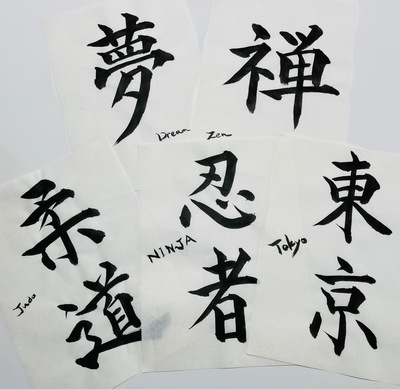 夢
Dream
禅
Zen
柔道
Judo
忍者
NINJA
東京
Tokyo